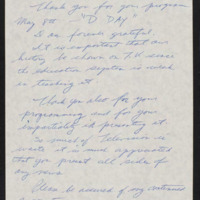 Thank you for your program
May 8th "D DAY"
I am forever grateful
It is important that our
history be shown on T.V. since
the education system is weak
in teaching it.
Thank you also for your
programming and for your
impartiality in presenting it.
So much of Television is
waste it is much appreciated
that you present all sides of
any issue.
Please be assured of my continued